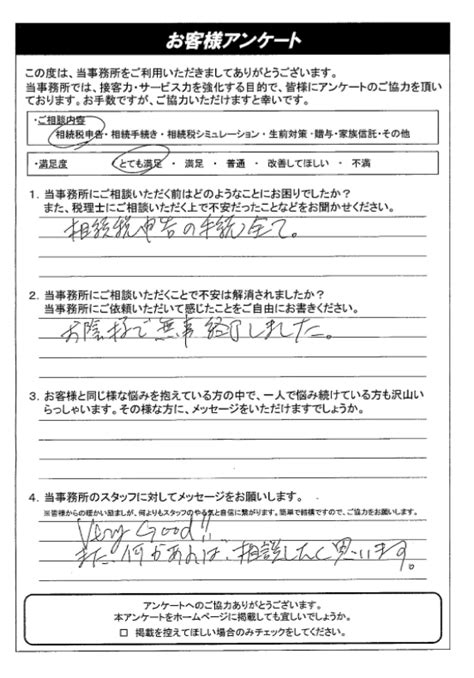 お客様アンケート
この度は、当事務所をご利用いただきましてありがとうございます。
当事務所では、接客力・サービス力を強化する目的で、皆様にアンケートのご協力を頂い
ております。お手数ですが、ご協力いただけますと幸いです。
・ご相談内容
相続税申告・相続手続き・相続税シミュレーション・生前対策・贈与・家族信託・その他
・満足度　とても満足 ・ 満足 ・ 普通 ・ 改善してほしい ・ 不満
1．当事務所にご相談いただく前はどのようなことにお困りでしたか？
また、税理士にご相談いただく上で不安だったことなどをお聞かせください。
相続税申告の手続全て。
2．当事務所にご相談いただくことで不安は解消されましたか？
当事務所にご依頼いただいて感じたことをご自由にお書きください。
お陰様で無事終了しました。
3．お客様と同じ様な悩みを抱えている方の中で、一人で悩み続けている方も沢山い
らっしゃいます。その様な方に、メッセージをいただけますでしょうか。
4．当事務所のスタッフに対してメッセージをお願いします。
※皆様からの暖かい励ましが、何よりもスタッフのやる気と自信に繋がります。簡単で結構ですので、ご協力をお願いします。
Very Good!!
また何かあれば、相談したく思います。
アンケートへのご協力ありがとうございます。
本アンケートをホームページに掲載しても宜しいでしょうか。
□ 掲載を控えてほしい場合のみチェックをしてください。